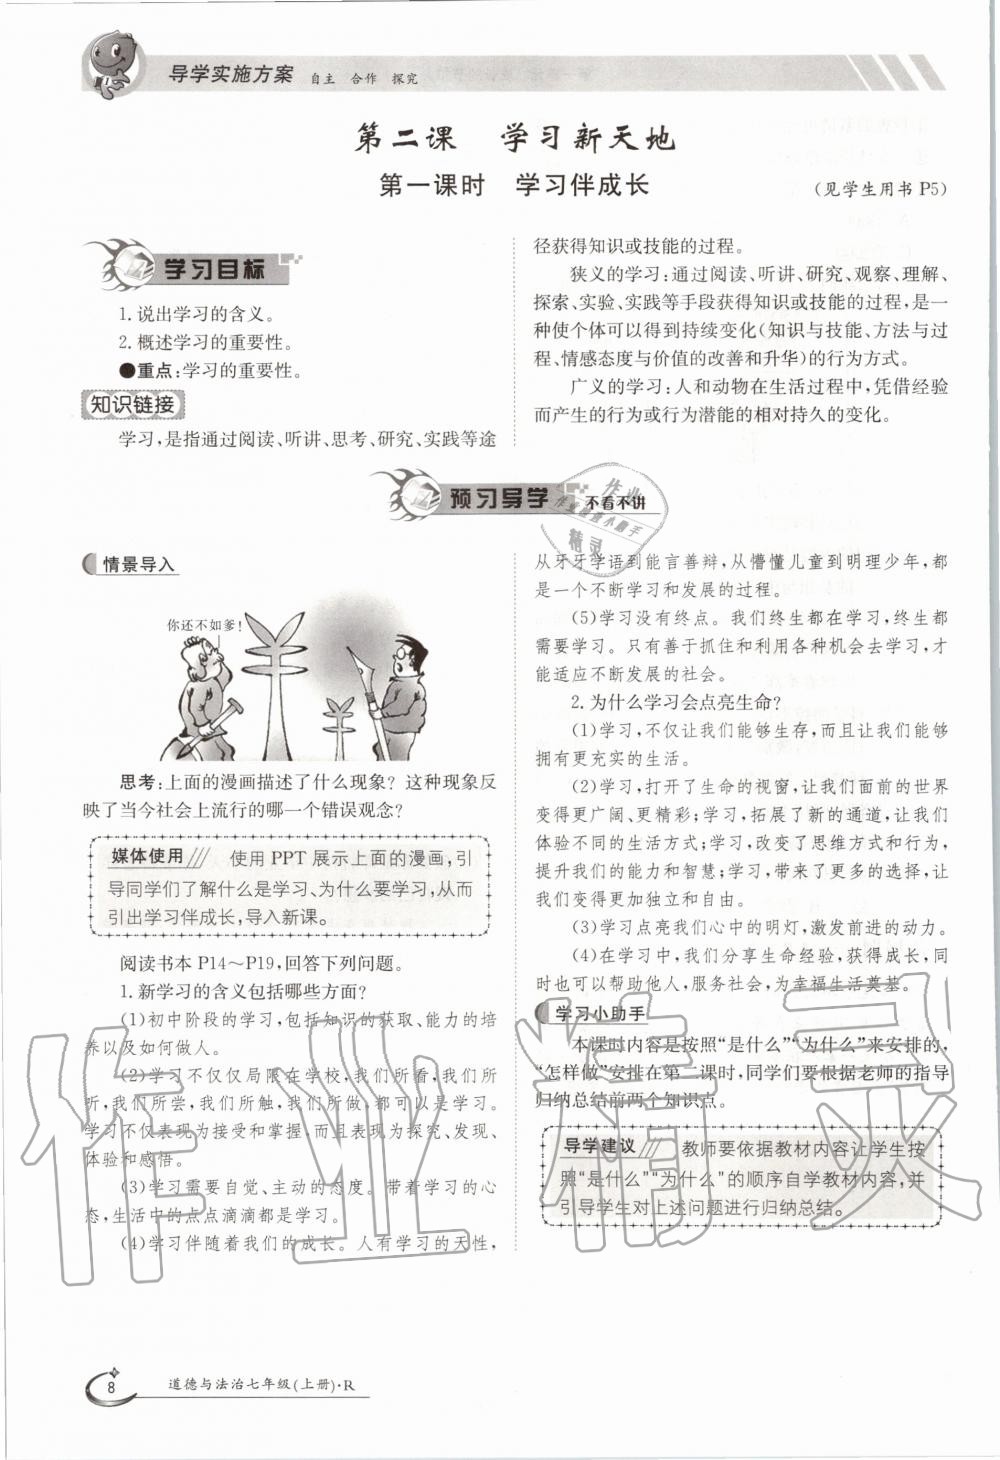 导学实施方案 自主 合作 探究
第二课 学习新天地
第一课时 学习伴成长
(见学生用书 P5)
学习目标
1. 说出学习的含义。
2. 概述学习的重要性。
●重点:学习的重要性。
知识链接
学习,是指通过阅读、听讲、思考、研究、实践等途
径获得知识或技能的过程。
狭义的学习:通过阅读、听讲、研究、观察、理解、
探索、实验、实践等手段获得知识或技能的过程,是一
种使个体可以得到持续变化(知识与技能、方法与过
程、情感态度与价值的改善和升华)的行为方式。
广义的学习:人和动物在生活过程中,凭借经验
而产生的行为或行为潜能的相对持久的变化。
预习导学 不看不讲
情景导入
你还不如爹!
思考:上面的漫画描述了什么现象? 这种现象反
映了当今社会上流行的哪一个错误观念?
媒体使用 使用 PPT 展示上面的漫画,引
导同学们了解什么是学习、为什么要学习,从而
引出学习伴成长,导入新课。
阅读书本 P14～P19,回答下列问题。
1. 新学习的含义包括哪些方面?
(1)初中阶段的学习,包括知识的获取、能力的培
养以及如何做人。
(2)学习不仅仅局限在学校,我们所看,我们所
听,我们所尝,我们所触,我们所做,都可以是学习。
学习不仅表现为接受和掌握,而且表现为探究、发现、
体验和感悟。
(3)学习需要自觉、主动的态度。带着学习的心
态,生活中的点点滴滴都是学习。
(4)学习伴随着我们的成长。人有学习的天性,
从牙牙学语到能言善辩,从懵懂儿童到明理少年,都
是一个不断学习和发展的过程。
(5)学习没有终点。我们终生都在学习,终生都
需要学习。只有善于抓住和利用各种机会去学习,才
能适应不断发展的社会。
2. 为什么学习会点亮生命?
(1)学习,不仅让我们能够生存,而且让我们能够
拥有更充实的生活。
(2)学习,打开了生命的视窗,让我们面前的世界
变得更广阔、更精彩;学习,拓展了新的通道,让我们
体验不同的生活方式;学习,改变了思维方式和行为,
提升我们的能力和智慧;学习,带来了更多的选择,让
我们变得更加独立和自由。
(3)学习点亮我们心中的明灯,激发前进的动力。
(4)在学习中,我们分享生命经验,获得成长,同
时也可以帮助他人,服务社会,为幸福生活奠基。
学习小助手
本课时内容是按照“是什么”“为什么”来安排的,
“怎样做”安排在第二课时,同学们要根据老师的指导
归纳总结前两个知识点。
导学建议 教师要依据教材内容让学生按
照“是什么”“为什么”的顺序自学教材内容,并
引导学生对上述问题进行归纳总结。
作业精灵
8 道德与法治七年级(上册)·R